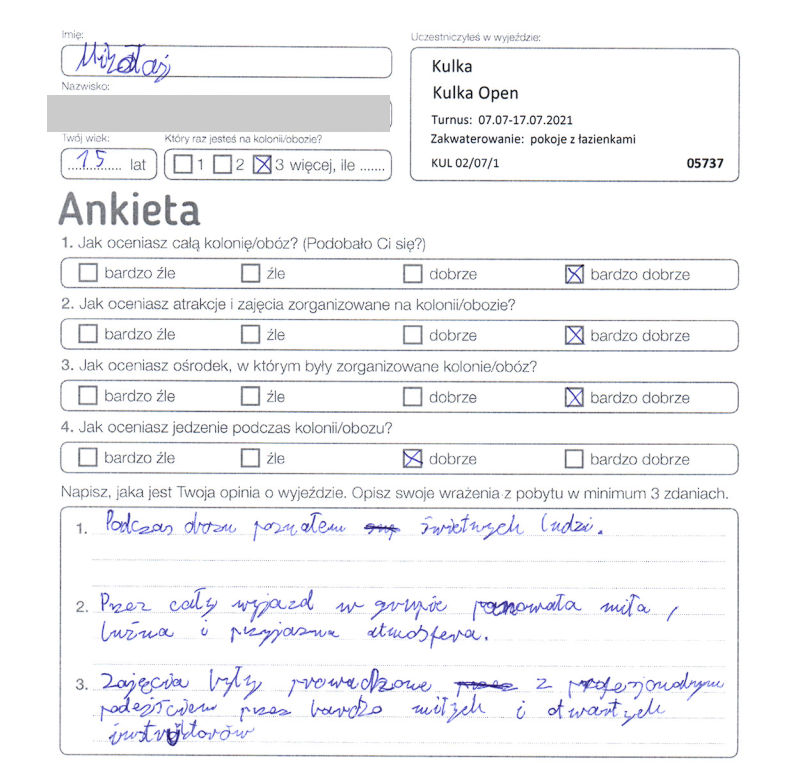 Imię:
Mikołaj
Nazwisko:
Twój wiek:
15 lat
Który raz jesteś na kolonii/obozie?
1 2 3 więcej, ile .......
Uczestniczyłeś w wyjeździe:
Kulka
Kulka Open
Turnus: 07.07-17.07.2021
Zakwaterowanie: pokoje z łazienkami
KUL 02/07/1 05737
Ankieta
1. Jak oceniasz całą kolonię/obóz? (Podobało Ci się?)
bardzo źle źle dobrze bardzo dobrze
2. Jak oceniasz atrakcje i zajęcia zorganizowane na kolonii/obozie?
bardzo źle źle dobrze bardzo dobrze
3. Jak oceniasz ośrodek, w którym były zorganizowane kolonie/obóz?
bardzo źle źle dobrze bardzo dobrze
4. Jak oceniasz jedzenie podczas kolonii/obozu?
bardzo źle źle dobrze bardzo dobrze
Napisz, jaka jest Twoja opinia o wyjeździe. Opisz swoje wrażenia z pobytu w minimum 3 zdaniach.
1. Podczas obozu poznałem świetnych ludzi.
2. Przez cały wyjazd w grupie panowała miła,
luźna i przyjazna atmosfera.
3. Zajęcia były prowadzone z profesjonalnym
podejściem przez bardzo miłych i otwartych
instruktorów